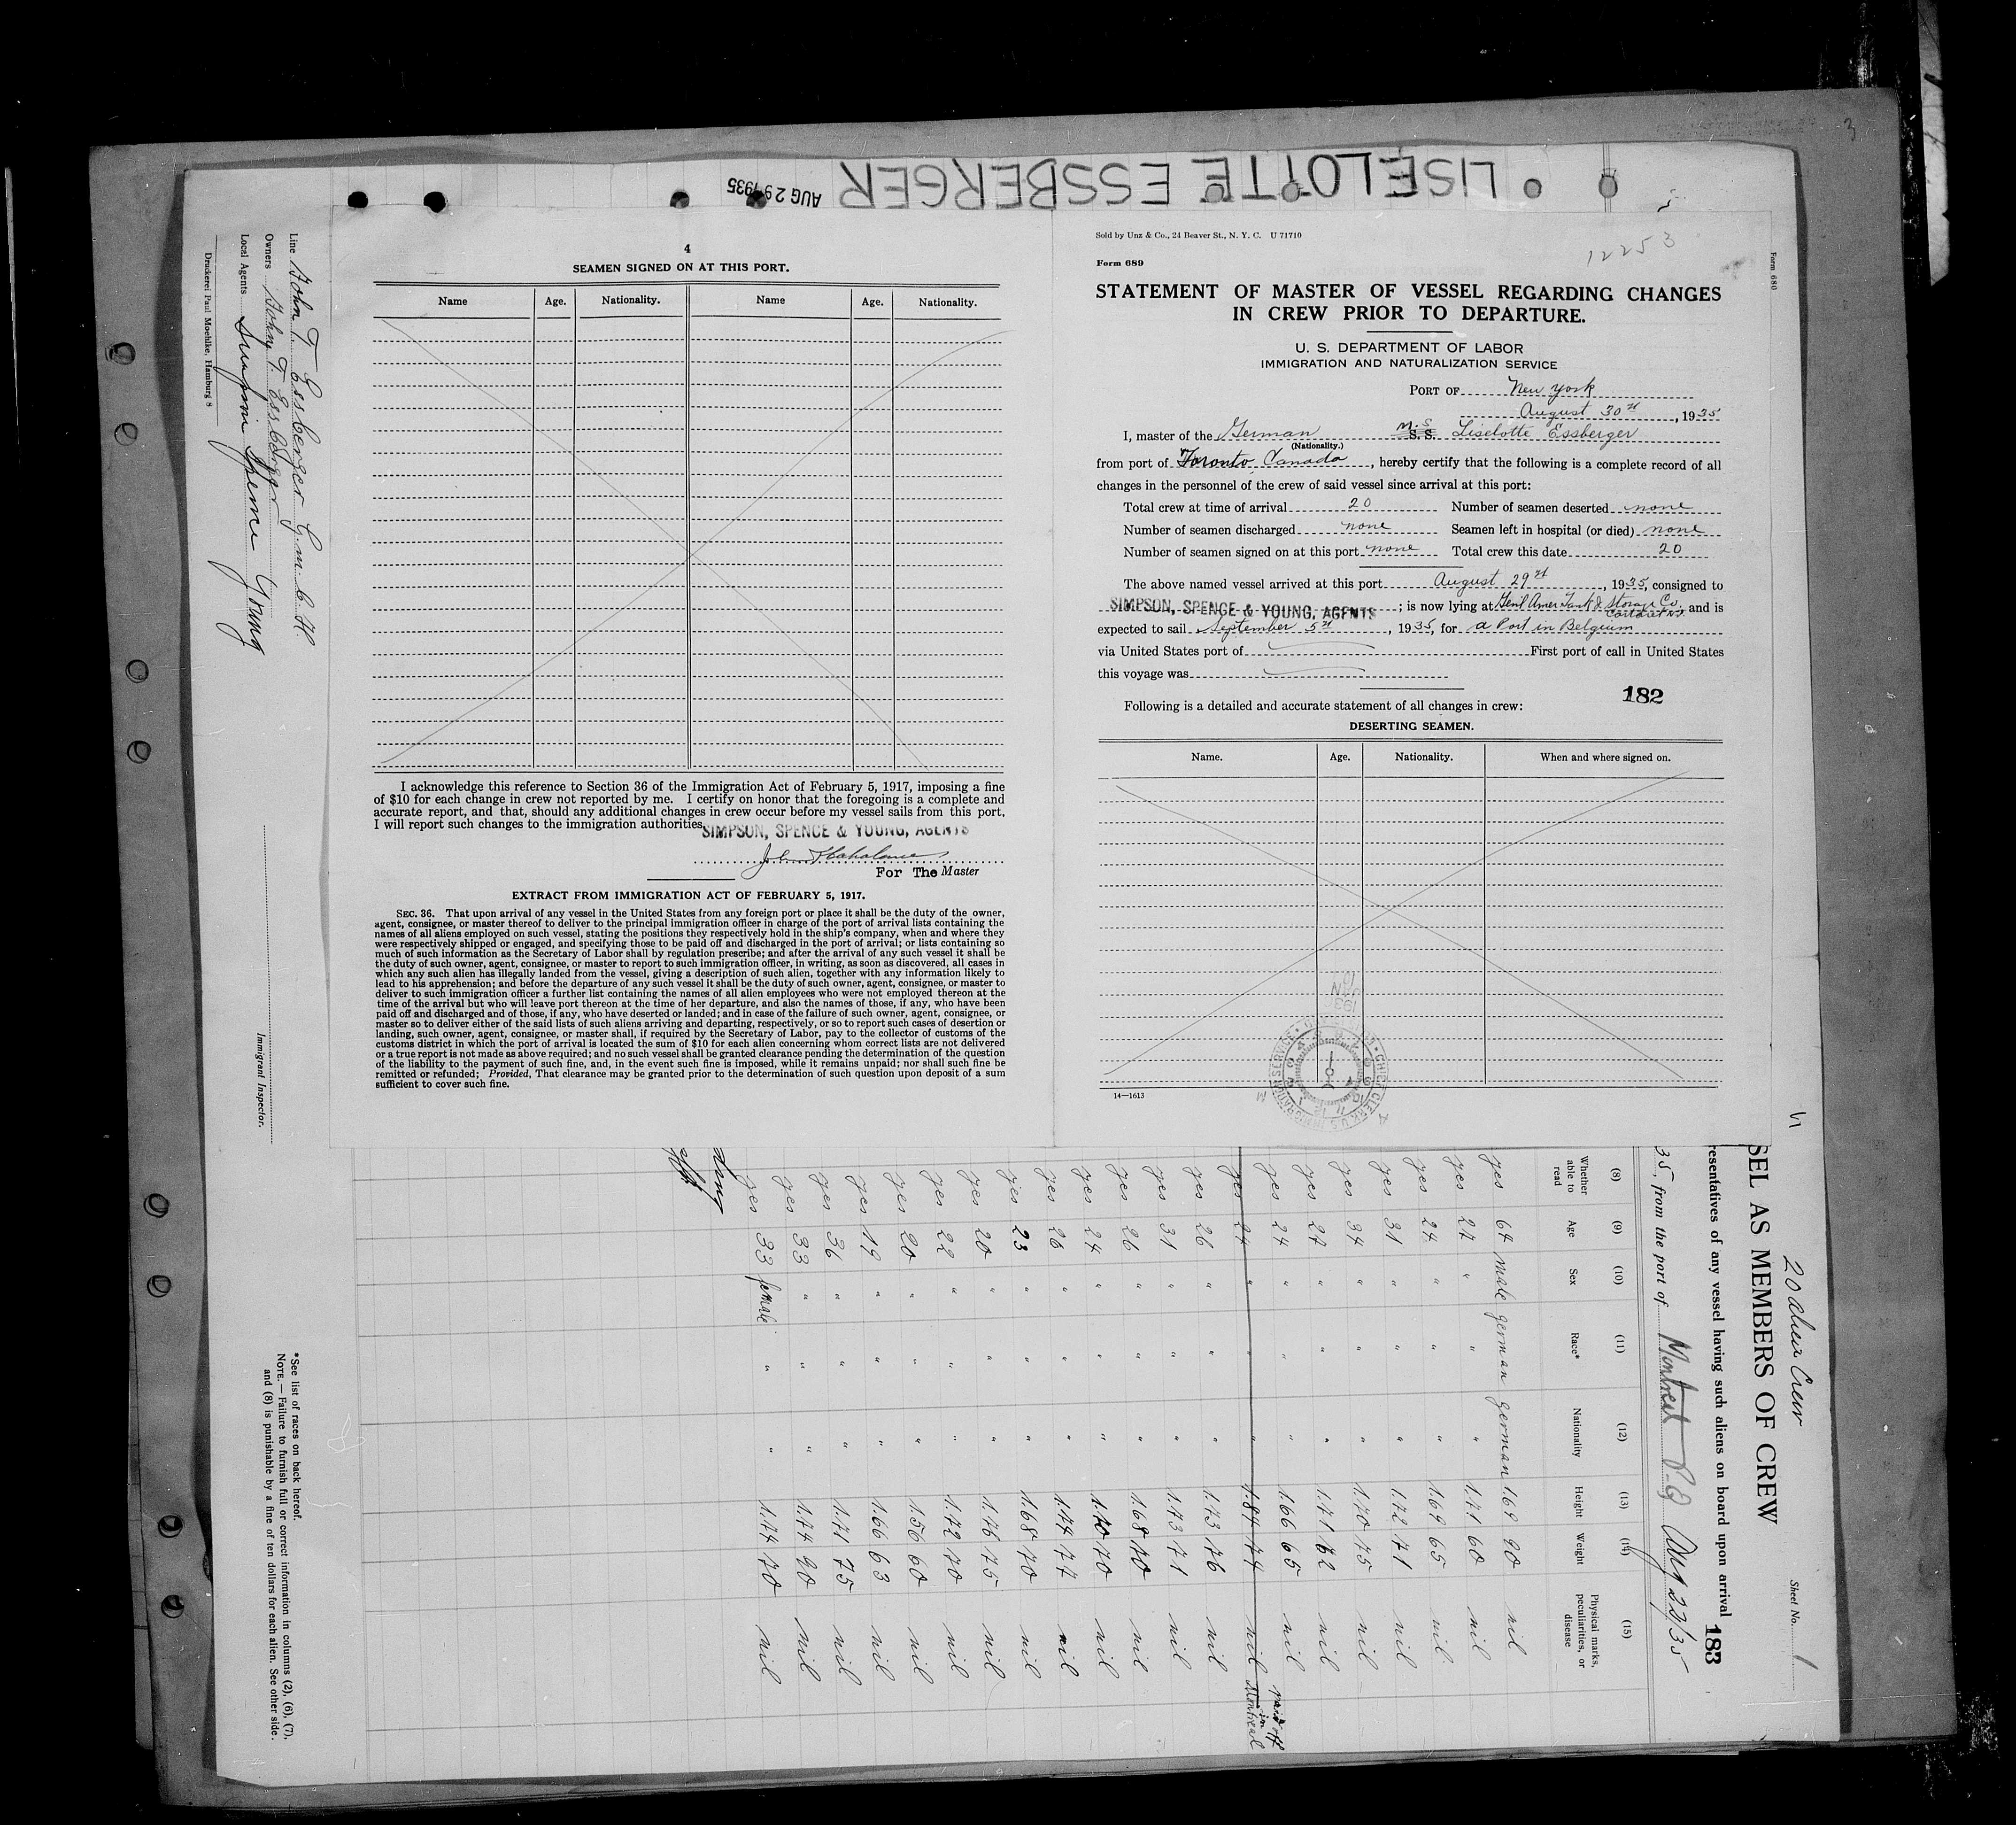 LISELOTTE ESSBERGER
AUG 29 1935
3
Line John T. Essberger G.m.b.H
Owners John T. Essberger
Local Agents Simpson Spence Young
Druckerei Paul Moehlke, Hamburg 8
Immigrant Inspector.
*See list of races on back hereof.
NOTE. — Failure to furnish full or correct information in columns (2), (6), (7),
and (8) is punishable by a fine of ten dollars for each alien. See other side.
4
SEAMEN SIGNED ON AT THIS PORT.
Name Age. Nationality. Name Age. Nationality.
I acknowledge this reference to Section 36 of the Immigration Act of February 5, 1917, imposing a fine
of $10 for each change in crew not reported by me. I certify on honor that the foregoing is a complete and
accurate report, and that, should any additional changes in crew occur before my vessel sails from this port,
I will report such changes to the immigration authorities.
SIMPSON, SPENCE & YOUNG, AGENTS
For The Master
EXTRACT FROM IMMIGRATION ACT OF FEBRUARY 5, 1917.
SEC. 36. That upon arrival of any vessel in the United States from any foreign port or place it shall be the duty of the owner,
agent, consignee, or master thereof to deliver to the principal immigration officer in charge of the port of arrival lists containing the
names of all aliens employed on such vessel, stating the positions they respectively hold in the ship's company, when and where they
were respectively shipped or engaged, and specifying those to be paid off and discharged in the port of arrival; or lists containing so
much of such information as the Secretary of Labor shall by regulation prescribe; and after the arrival of any such vessel it shall be
the duty of such owner, agent, consignee, or master to report to such immigration officer, in writing, as soon as discovered, all cases in
which any such alien has illegally landed from the vessel, giving a description of such alien, together with any information likely to
lead to his apprehension; and before the departure of any such vessel it shall be the duty of such owner, agent, consignee, or master to
deliver to such immigration officer a further list containing the names of all alien employees who were not employed thereon at the
time of the arrival but who will leave port thereon at the time of her departure, and also the names of those, if any, who have been
paid off and discharged and of those, if any, who have deserted or landed; and in case of the failure of such owner, agent, consignee, or
master so to deliver either of the said lists of such aliens arriving and departing, respectively, or so to report such cases of desertion or
landing, such owner, agent, consignee, or master shall, if required by the Secretary of Labor, pay to the collector of customs of the
customs district in which the port of arrival is located the sum of $10 for each alien concerning whom correct lists are not delivered
or a true report is not made as above required; and no such vessel shall be granted clearance pending the determination of the question
of the liability to the payment of such fine, and, in the event such fine is imposed, while it remains unpaid; nor shall such fine be
remitted or refunded; Provided, That clearance may be granted prior to the determination of such question upon deposit of a sum
sufficient to cover such fine.
Sold by Unz & Co., 24 Beaver St., N. Y. C. U 71710
12253
Form 689
Form 680
STATEMENT OF MASTER OF VESSEL REGARDING CHANGES
IN CREW PRIOR TO DEPARTURE.
U. S. DEPARTMENT OF LABOR
IMMIGRATION AND NATURALIZATION SERVICE
PORT OF New York
August 30th, 1935
I, master of the German M.S. S.S. Liselotte Essberger
(Nationality.)
from port of Toronto, Canada, hereby certify that the following is a complete record of all
changes in the personnel of the crew of said vessel since arrival at this port:
Total crew at time of arrival 20 Number of seamen deserted none
Number of seamen discharged none Seamen left in hospital (or died) none
Number of seamen signed on at this port none Total crew this date 20
The above named vessel arrived at this port August 29th, 1935, consigned to
SIMPSON, SPENCE & YOUNG, AGENTS; is now lying at Genl Amer Tank & Storage Co, Carteret NJ and is
expected to sail September 5th, 1935, for a Port in Belgium
via United States port of First port of call in United States
this voyage was
182
Following is a detailed and accurate statement of all changes in crew:
DESERTING SEAMEN.
Name. Age. Nationality. When and where signed on.
CHIEF CLERK U.S. IMMIGRATION SERVICE
14—1613
20 alien Crew
Sheet No. 1
SEL AS MEMBERS OF CREW
resentatives of any vessel having such aliens on board upon arrival 183
35, from the port of Montreal P.Q Aug 23/35
(8) (9) (10) (11) (12) (13) (14) (15)
Whether able to read Age Sex Race* Nationality Height Weight Physical marks, peculiarities, or disease
yes 64 male german german 1.69 90 nil
yes 27 " " " 1.71 60 nil
yes 24 " " " 1.69 65 nil
yes 31 " " " 1.72 71 nil
yes 34 " " " 1.70 75 nil
yes 27 " " " 1.71 62 nil
yes 24 " " " 1.66 65 nil
yes 24 " " " 1.84 74 nil paid off in Montreal
yes 26 " " " 1.73 76 nil
yes 31 " " " 1.73 71 nil
yes 26 " " " 1.68 70 nil
yes 24 " " " 1.70 70 nil
yes 26 " " " 1.74 74 nil
yes 23 " " " 1.68 70 nil
yes 20 " " " 1.76 75 nil
yes 22 " " " 1.72 70 nil
yes 20 " " " 1.56 60 nil
yes 19 " " " 1.66 63 nil
yes 36 " " " 1.71 75 nil
yes 33 " " " 1.74 90 nil
yes 33 female " " 1.74 70 nil